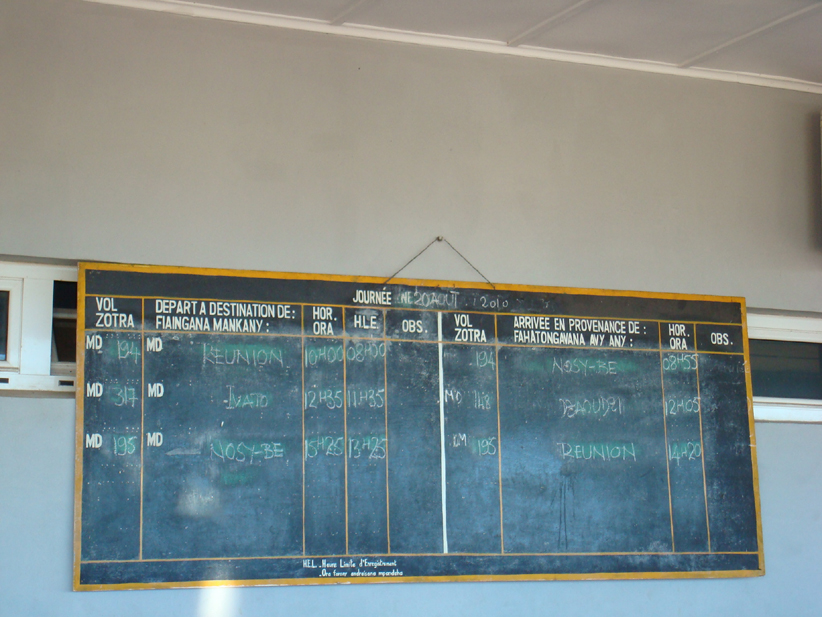 JOURNÉE NE 20 AOUT 2010
VOL DEPART A DESTINATION DE: HOR. HLE. OBS. VOL ARRIVEE EN PROVENANCE DE : HOR. OBS.
ZOTRA FIAINGANA MANKANY : ORA ZOTRA FAHATONGAVANA AVY ANY : ORA
MD 194 MD REUNION 10H00 08H30 194 NOSY-BE 08H55
MD 317 MD IVATO 12H35 11H35 MD 148 12H05
MD 195 MD NOSY-BE 15H25 13H25 195 REUNION 14H20
H.E.L. Heure Limite d'Enregistrement
.Ora farany andraisana mpandeha